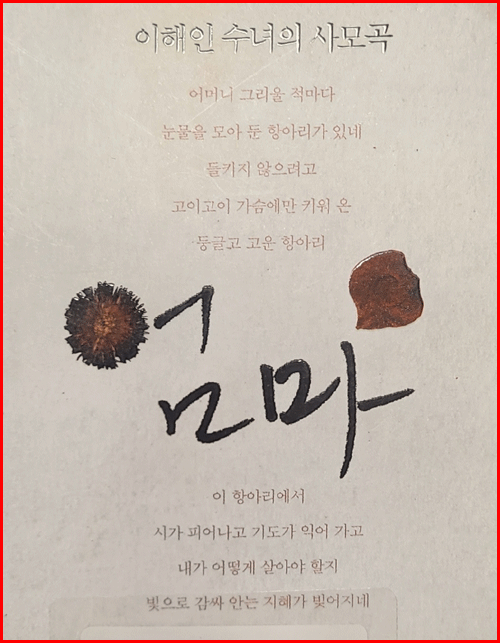 이해인 수녀의 사모곡
어머니 그리울 적마다
눈물을 모아 둔 항아리가 있네
들키지 않으려고
고이고이 가슴에만 키워 온
둥글고 고운 항아리
엄마
이 항아리에서
시가 피어나고 기도가 익어 가고
내가 어떻게 살아야 할지
빛으로 감싸 안는 지혜가 빚어지네